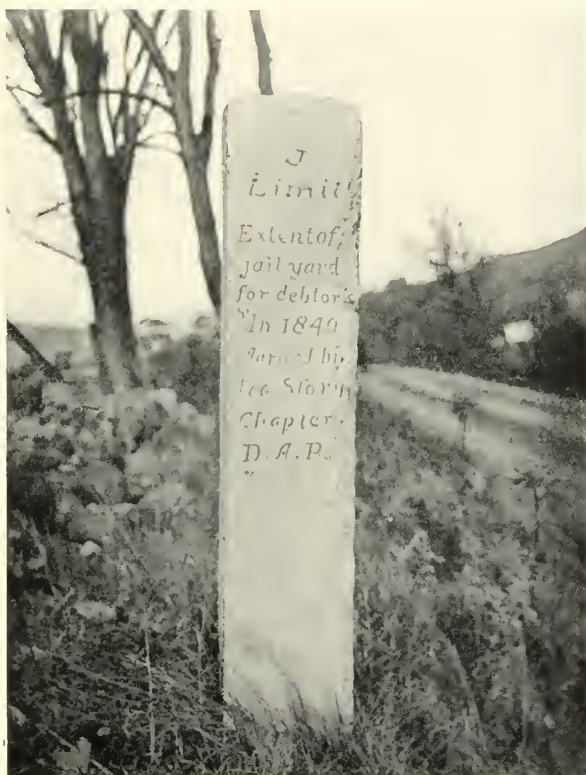 J
Limit
Extent of
jail yard
for debtors
In 1840
Chapter.
D.A.R.